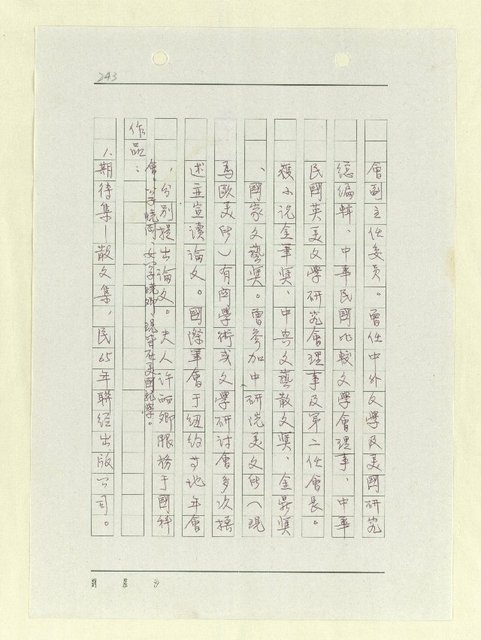 243
會副主任委員。曾任中外文學及美國研究
總編輯、中華民國比較文學會理事、中華
民國英美文學研究會理事及第二任會長。
獲小說金筆獎、中興文藝散文獎、金鼎獎
、國家文藝獎。曾參加中研院美文所(現
為歐美所)有關學術或文學研討會多次撰
述並宣讀論文。國際筆會于紐約等地年會
,分別提出論文。夫人許 卿服務于國科
會。子曉同、女 曉卿 現皆在美國 學。
作品:
1.期待集 散文集,民65年聯經出版公司。